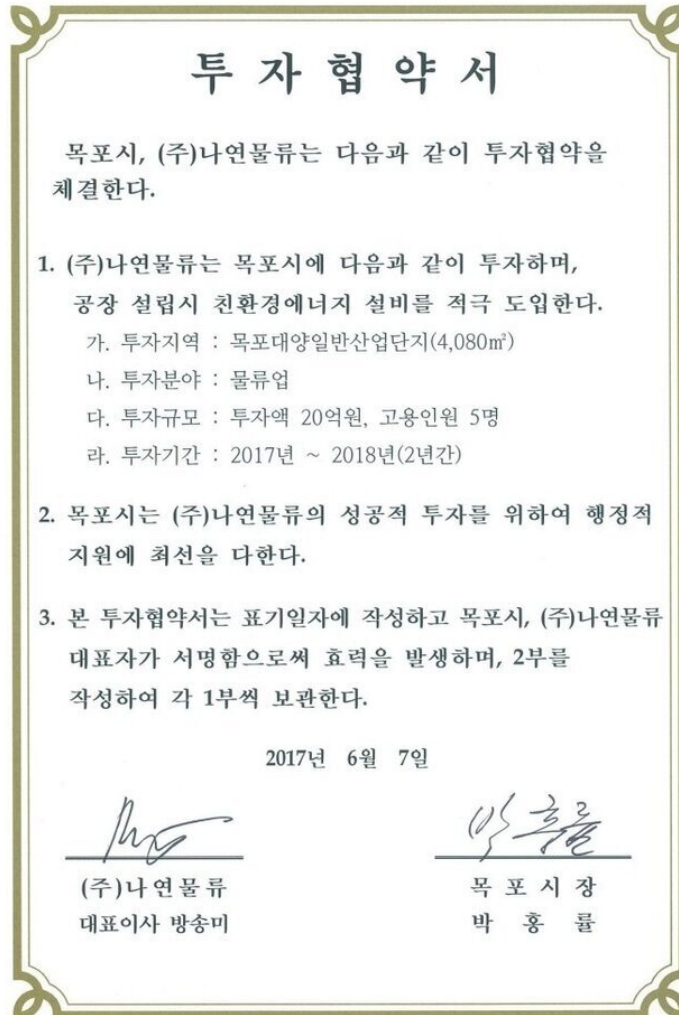 투 자 협 약 서
목포시, (주)나연물류는 다음과 같이 투자협약을
체결한다.
1. (주)나연물류는 목포시에 다음과 같이 투자하며,
공장 설립시 친환경에너지 설비를 적극 도입한다.
가. 투자지역 : 목포대양일반산업단지(4,080㎡)
나. 투자분야 : 물류업
다. 투자규모 : 투자액 20억원, 고용인원 5명
라. 투자기간 : 2017년 ~ 2018년(2년간)
2. 목포시는 (주)나연물류의 성공적 투자를 위하여 행정적
지원에 최선을 다한다.
3. 본 투자협약서는 표기일자에 작성하고 목포시, (주)나연물류
대표자가 서명함으로써 효력을 발생하며, 2부를
작성하여 각 1부씩 보관한다.
2017년 6월 7일
박홍률
(주)나연물류
목 포 시 장
대표이사 방송미
박 홍 률